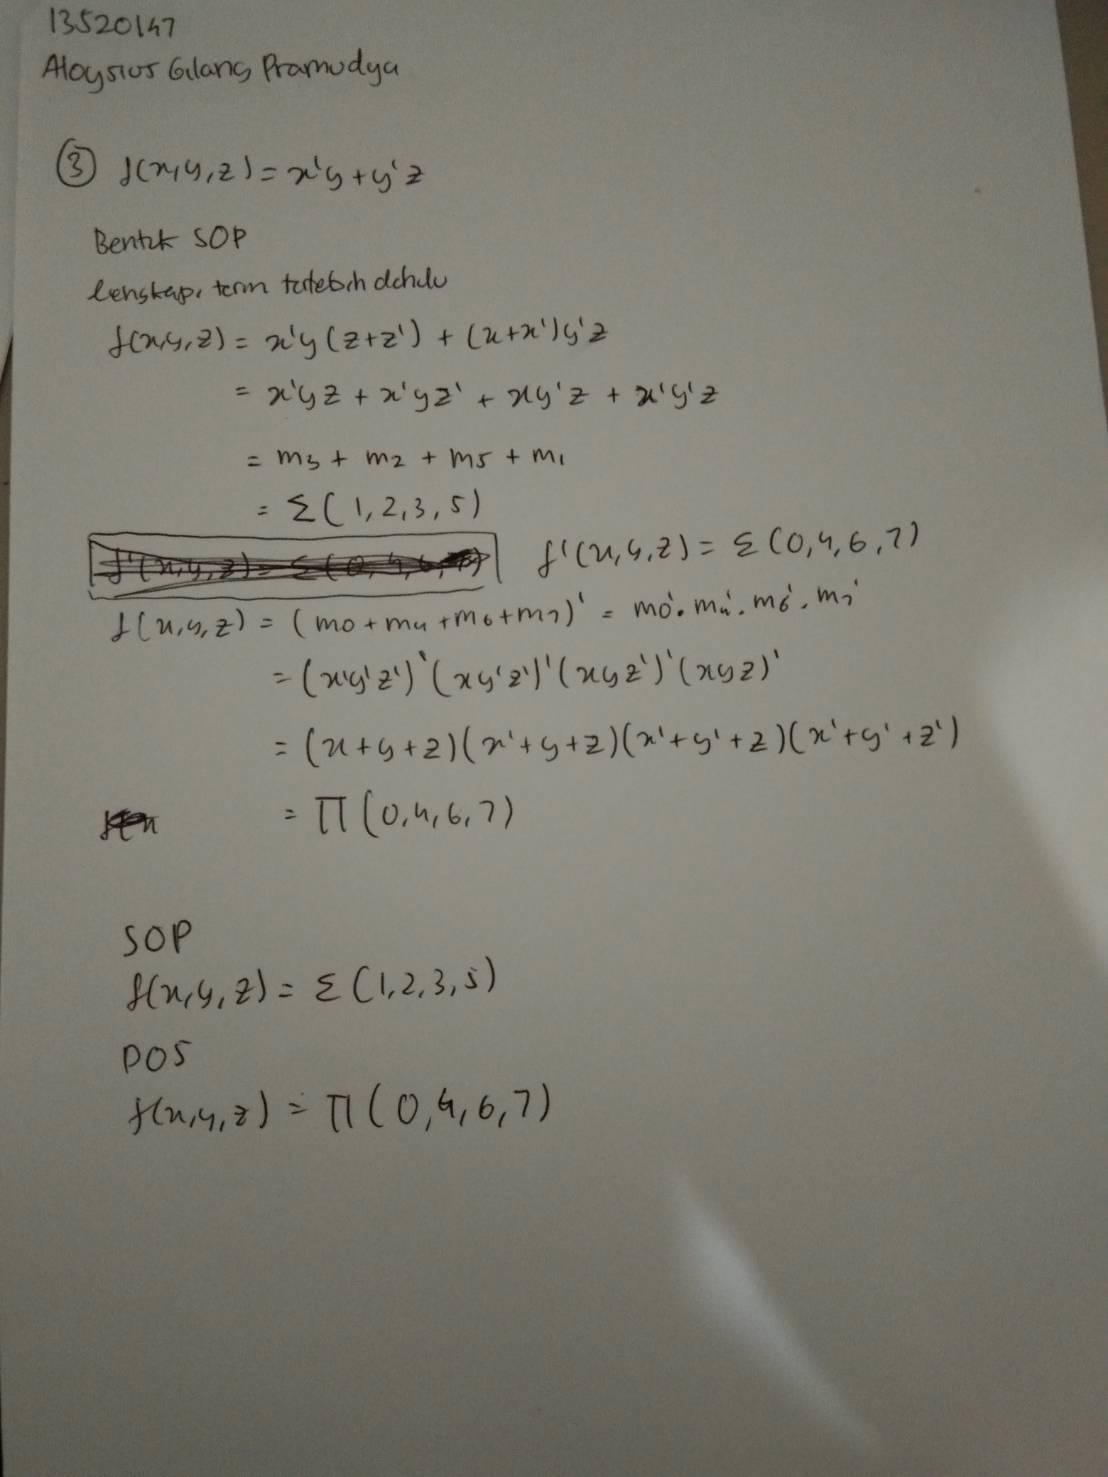 13520147
Aloysius Gilang Pramudya
③ f(x,y,z) = x'y + y'z
Bentuk SOP
lengkapi term terlebih dahulu
f(x,y,z) = x'y (z+z') + (x+x')y'z
= x'yz + x'yz' + xy'z + x'y'z
= m3 + m2 + m5 + m1
= Σ(1,2,3,5)
f'(x,y,z) = Σ(0,4,6,7)
f(x,y,z) = (m0 + m4 + m6 + m7)' = m0'. m4'. m6'. m7'
= (x'y'z')'(xy'z')'(xyz')'(xyz)'
= (x+y+z)(x'+y+z)(x'+y'+z)(x'+y'+z')
= Π(0,4,6,7)
SOP
f(x,y,z) = Σ(1,2,3,5)
POS
f(x,y,z) = Π(0,4,6,7)